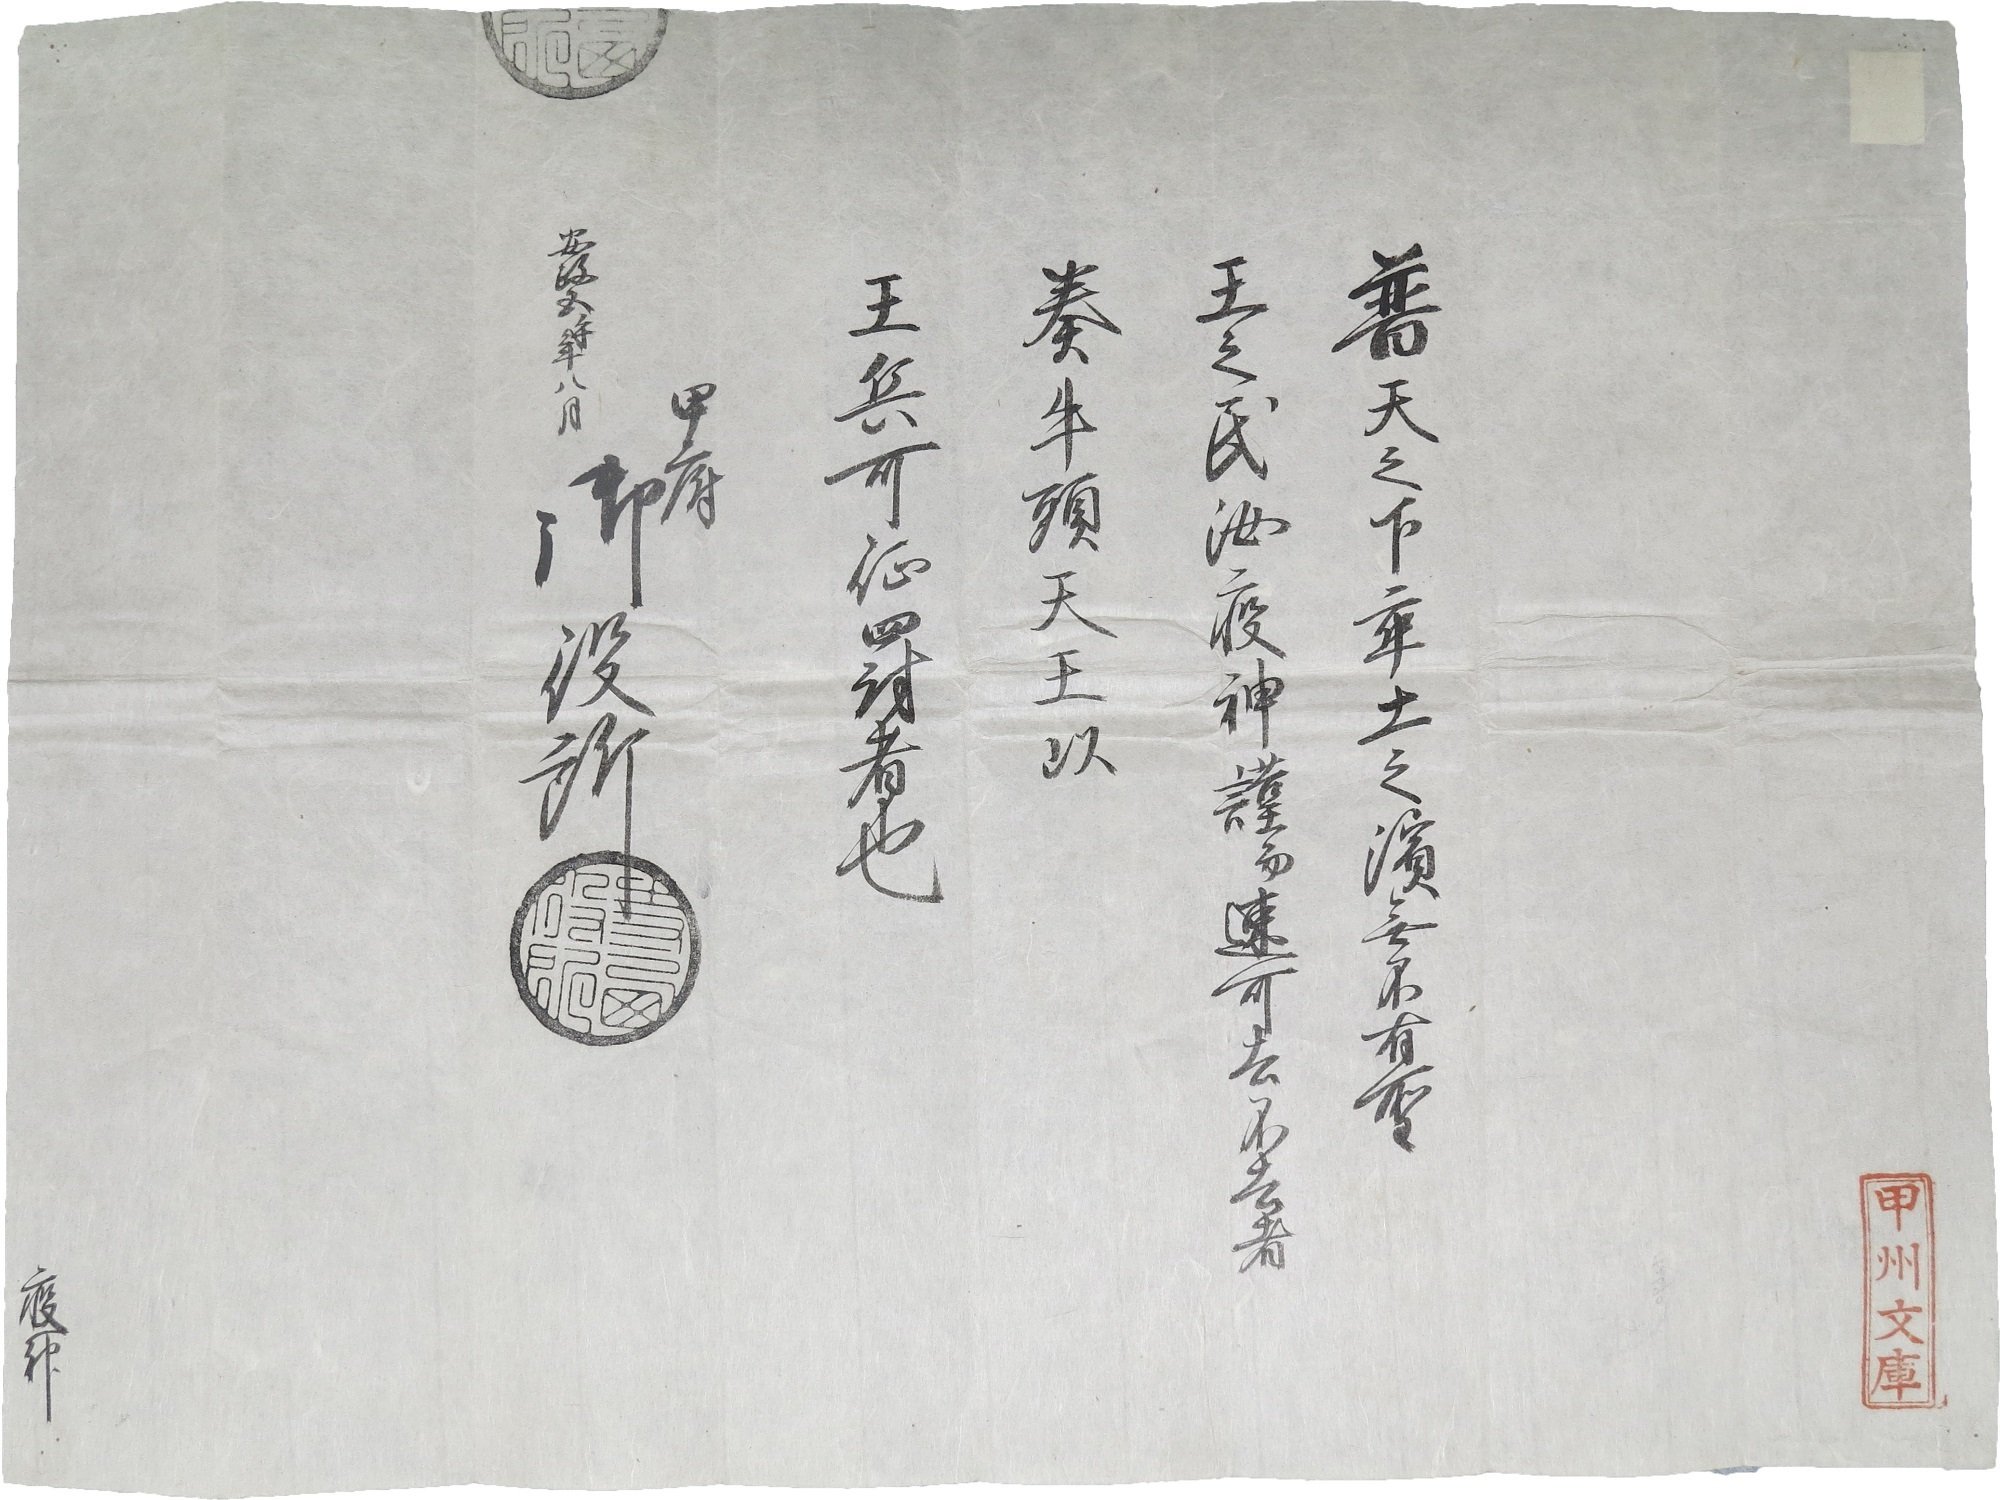 普天之下率土之濱無不有聖
王之民汝疫神謹而速可去不去者
奏牛頭天王以
王兵可征罰者也
甲府
御役所
安政五午年八月
疫神
甲州文庫